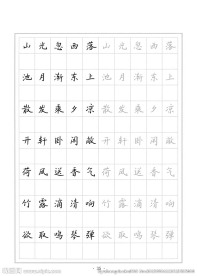 山光忽西落山光忽西落
池月渐东上池月渐东上
散发乘夕凉散发乘夕凉
开轩卧闲敞开轩卧闲敞
荷风送香气荷风送香气
竹露滴清响竹露滴清响
欲取鸣琴弹欲取鸣琴弹